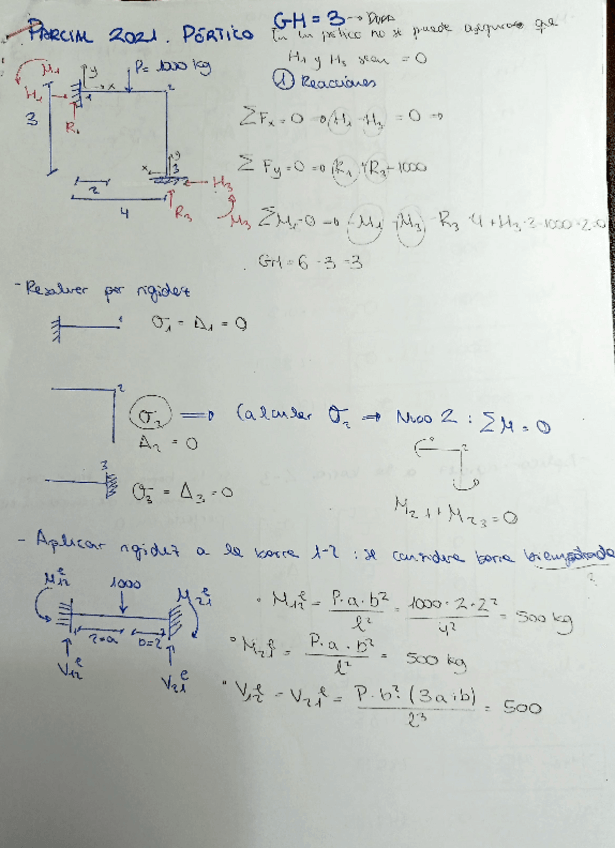 PARCIAL 2021. PÓRTICO
GH = 3 →
En un pórtico no se puede asegurar que
H1 y H3 sean = 0
① Reacciones
M1
y
x
P= 1000 kg
H1
1
2
3
R1
ΣFx = 0 → H1 - H3 = 0 →
ΣFy = 0 → R1 + R3 - 1000
x
y
3
2
H3
4
R3
M3
GH = 6 - 3 = 3
- Resolver por rigidez
1
θ1 = Δ1 = 0
2
θ2 ⟹ Calcular θ2 → Nudo 2 : ΣM = 0
Δ2 = 0
2
3
θ3 = Δ3 = 0
- Aplicar rigidez a la barra 1-2 : se considera barra biempotrada
?
M12^e
1000
M21^e
2=a
b=2
V12^e
V21^e
° M12^e = P·a·b²/l² = 1000·2·2²/4² = 500 kg
° M21^e = P·a·b²/l² = 500 kg
° V12^e = V21^e = P·b²·(3a+b)/l³ = 500